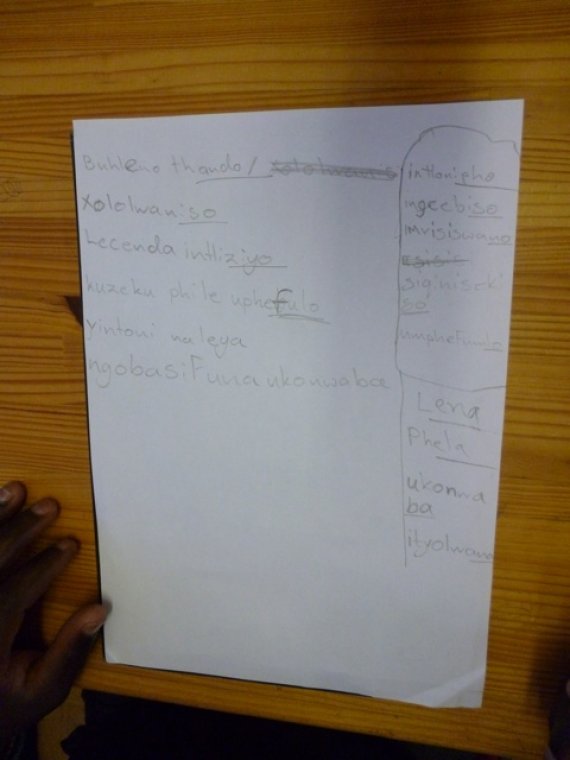 Buhleno thando/
Xololwaniso
Lecenda intliziyo
kuzeku phile uphefulo
yintoni naleya
ngobasifuna ukonwaba
intlonipho
ngcebiso
imvisiswano
siqiniseki
so
umphefumlo
Lena
Phela
ukonwa
ba
ityolwana